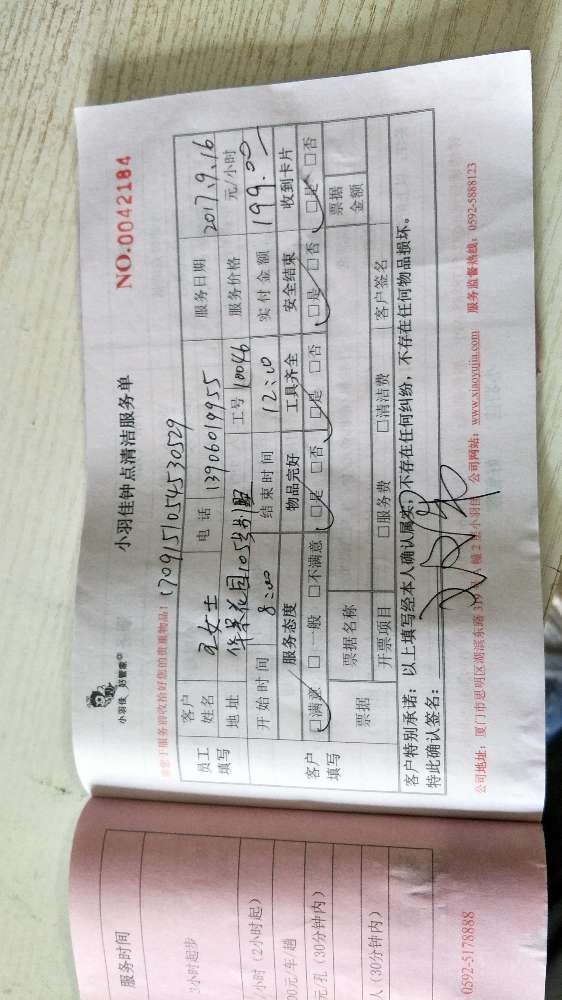 小羽佳 好管家
小羽佳钟点清洁服务单
NO:0042184
1709151054530529
员工填写
客户姓名 女士 电话 13906019955 服务日期 2017.9.16
地址 华荣花园105 工号 10046 服务价格 元/小时
开始时间 8:00 结束时间 12:00 实付金额 199.00
客户填写
服务态度 物品完好 工具齐全 安全结束 收到卡片
□满意 □一般 □不满意 □是 □否 □是 □否 □是 □否 □是 □否
票据 票据名称 票据金额
开票项目 □服务费 □清洁费 客户签名
客户特别承诺：以上填写经本人确认属实，不存在任何纠纷，不存在任何物品损坏。
特此确认签名：
公司地址：厦门市思明区湖滨东路 公司网站：www.xiaoyujia.com 服务监督热线：0592-5888123
服务时间
2小时起步
/小时（2小时起）
00元/车/趟
元/孔（30分钟内）
人（30分钟内）
0592-5178888